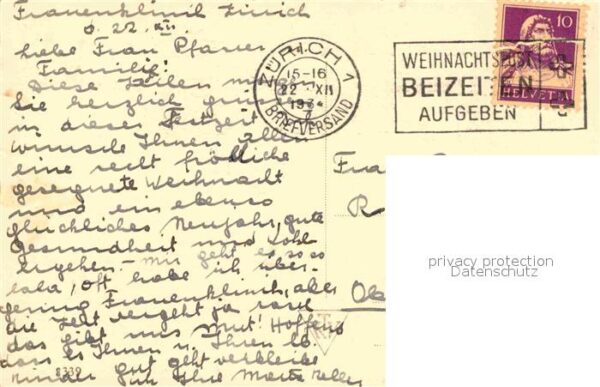 Frauenklinik Zürich
d. 22. XII.
Liebe Frau Pfarrer
Familie!
Diese Zeilen
Sie herzlich
in dieser Festzeit
wünsche Ihnen Allen
eine recht fröhliche
gesegnete Weihnacht
und ein ebenso
glückliches Neujahr, gute
Gesundheit und Wohl-
ergehen - mir geht es so so
lala, oft habe ich über-
genug Frauenklinik, aber
die Zeit vergeht ja rasch
das gibt mir Mut! Hoffend
dass es Ihnen u. Ihren lb.
gut geht verbleibe
Ihre
8339
ZÜRICH 1
15-16
22 XII
1934
7
BRIEFVERSAND
WEIHNACHTSPOST
BEIZEITEN
AUFGEBEN
10
HELVETIA
Fra
R
Ob
privacy protection
Datenschutz